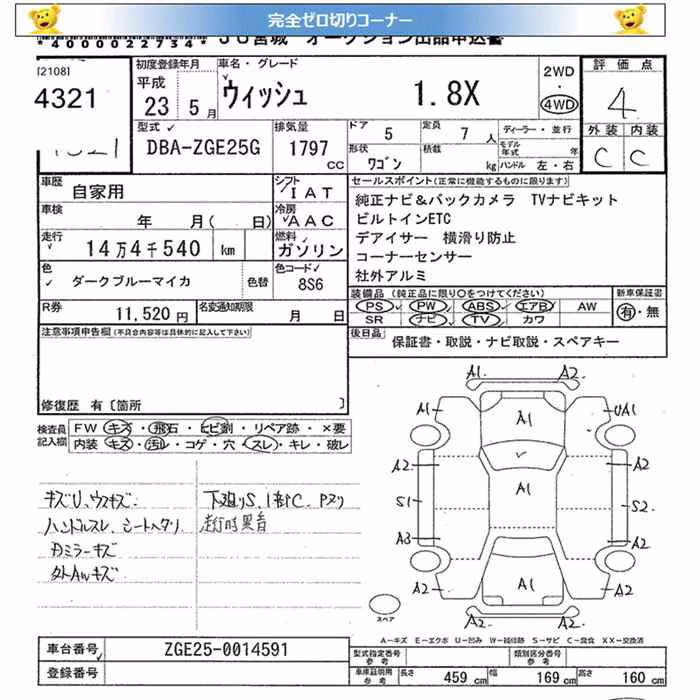 完全ゼロ切りコーナー
*4000022734* JU宮城 オークション出品申込書
[2108]
4321
初度登録年月
平成
23年 5月
車名・グレード
ウィッシュ 1.8X
2WD
・
4WD
評価点
4
外装 内装
C C
型式
DBA-ZGE25G
排気量
1797
CC
ドア 5
定員 7人
ディーラー・並行
形状 ワゴン
積載 kg
モデル年式 年
ハンドル 左・右
車歴 自家用
シフト IAT
車検 年 月( 日)
冷房 AAC
走行 14万4千540 km
燃料 ガソリン
色 ダークブルーマイカ
色替
色コード 8S6
R券 11,520円
名変通知期限 月 日
セールスポイント(正常に機能するものに限ります)
純正ナビ&バックカメラ TVナビキット
ビルトインETC
デアイサー 横滑り防止
コーナーセンサー
社外アルミ
装備品(純正品に限り○をつけてください)
新車保証書
PS PW ABS エアB AW
SR ナビ TV カワ
有・無
後日品
保証書・取説・ナビ取説・スペアキー
注意事項申告欄(不具合内容等は具体的に記入して下さい)
修復歴 有〔箇所 〕
検査員記入欄
FW キズ・飛石・ヒビ割・リペア跡・×要
内装 キズ・汚レ・コゲ・穴・スレ・キレ・破レ
キズU、ウスキズ
ハンドルスレ、シートヘタリ
ミラーキズ
外AWキズ
下廻りS、1部C、Pヌリ
走行時異音
A1 A2
A1 A1 UA1
A2 A2
A1
S1 S2
A3 A2
A2 A1 A2
A2 A2
スペア
A-キズ E-エクボ U-凹み W-補修跡 S-サビ C-腐食 XX-交換済
車台番号 ZGE25-0014591
登録番号
型式指定番号 参考
類別区分番号 参考
車庫証明用 参考
長さ 459 cm 幅 169 cm 高さ 160 cm